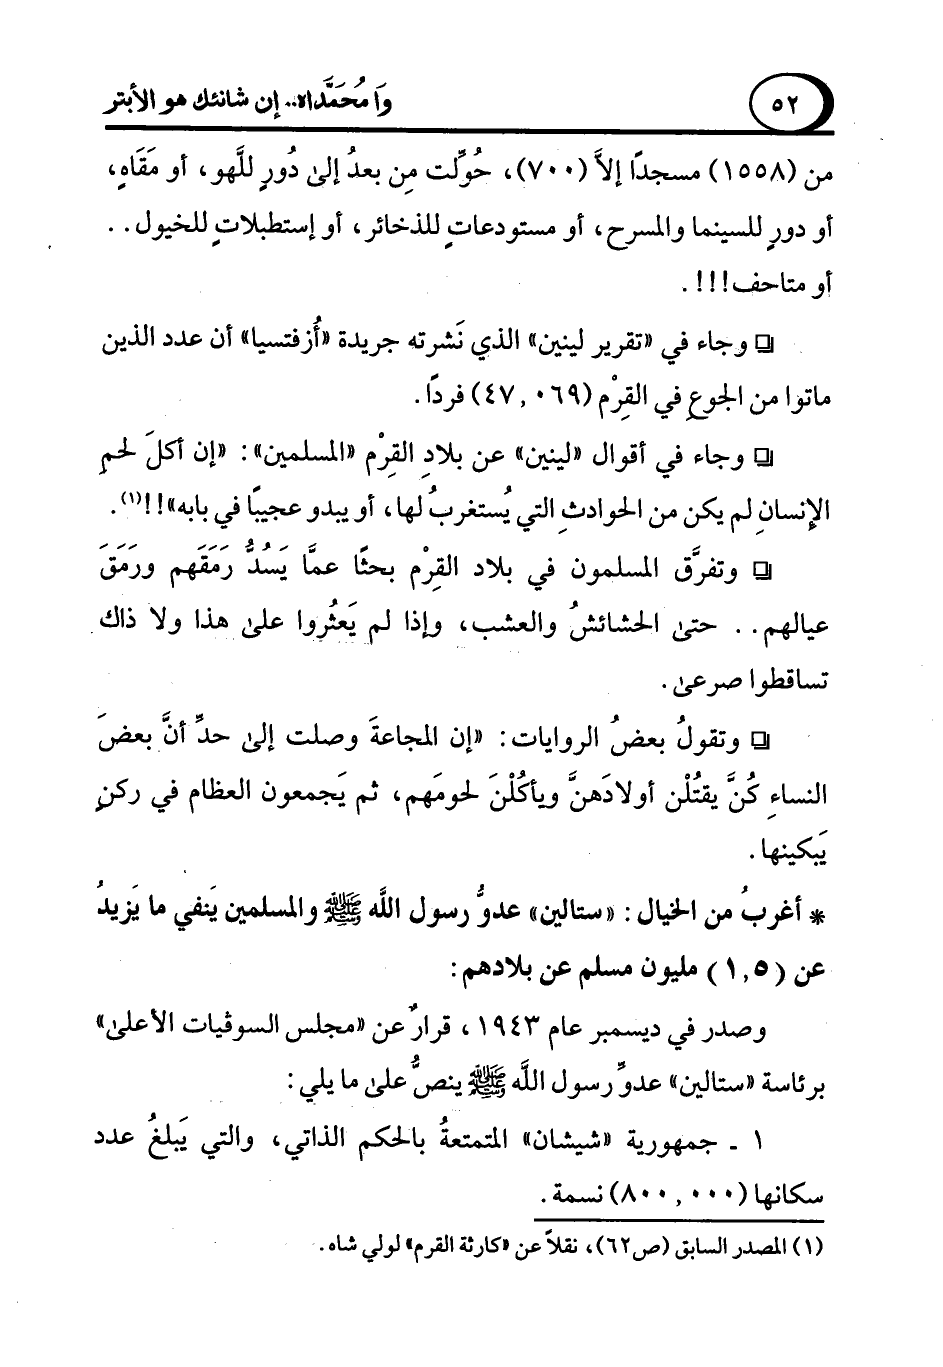 ٥٢
وَا مُحَمَّداه.. إن شانئك هو الأبتر
من (١٥٥٨) مسجدًا إلاَّ (٧٠٠)، حُوِّلت مِن بعدُ إلىٰ دُورٍ للَّهو، أو مَقَاهٍ،
أو دورٍ للسينما والمسرح، أو مستودعاتٍ للذخائر، أو إستطبلاتٍ للخيول. .
أو متاحف!!!.
❏ وجاء في «تقرير لينين» الذي نَشرته جريدة «أُزفتسيا» أن عدد الذين
ماتوا من الجوعِ في القِرْم (٤٧,٠٦٩) فردًا.
❏ وجاء في أقوال «لينين» عن بلادِ القِرْم «المسلمين»: «إن أكلَ لحمِ
الإنسانِ لم يكن من الحوادثِ التي يُستغربُ لها، أو يبدو عجيبًا في بابه»!!(١).
❏ وتفرَّق المسلمون في بلاد القِرْم بحثًا عمَّا يَسُدُّ رَمَقَهم ورَمَقَ
عيالهم. . حتىٰ الحشائشُ والعشب، وإذا لم يَعثُروا علىٰ هذا ولا ذاك
تساقطوا صرعىٰ.
❏ وتقولُ بعضُ الروايات: «إن المجاعةَ وصلت إلىٰ حدِّ أنَّ بعضَ
النساءِ كُنَّ يقتُلْن أولادَهنَّ ويأكُلْنَ لحومَهم، ثم يَجمعون العظام في ركنٍ
يَبكينها.
* أغربُ من الخيال: «ستالين» عدوُّ رسول اللَّه ﷺ والمسلمين يَنفي ما يَزيدُ
عن (١,٥) مليون مسلم عن بلادهم:
وصدر في ديسمبر عام ١٩٤٣، قرارٌ عن «مجلس السوڤيات الأعلىٰ»
برئاسة «ستالين» عدوِّ رسول اللَّه ﷺ ينصُّ علىٰ ما يلي:
١ ـ جمهورية «شيشان» المتمتعةُ بالحكم الذاتي، والتي يَبلغُ عدد
سكانها (٨٠٠,٠٠٠) نسمة.
(١) المصدر السابق (ص٦٢)، نقلاً عن «كارثة القرم» لولي شاه.